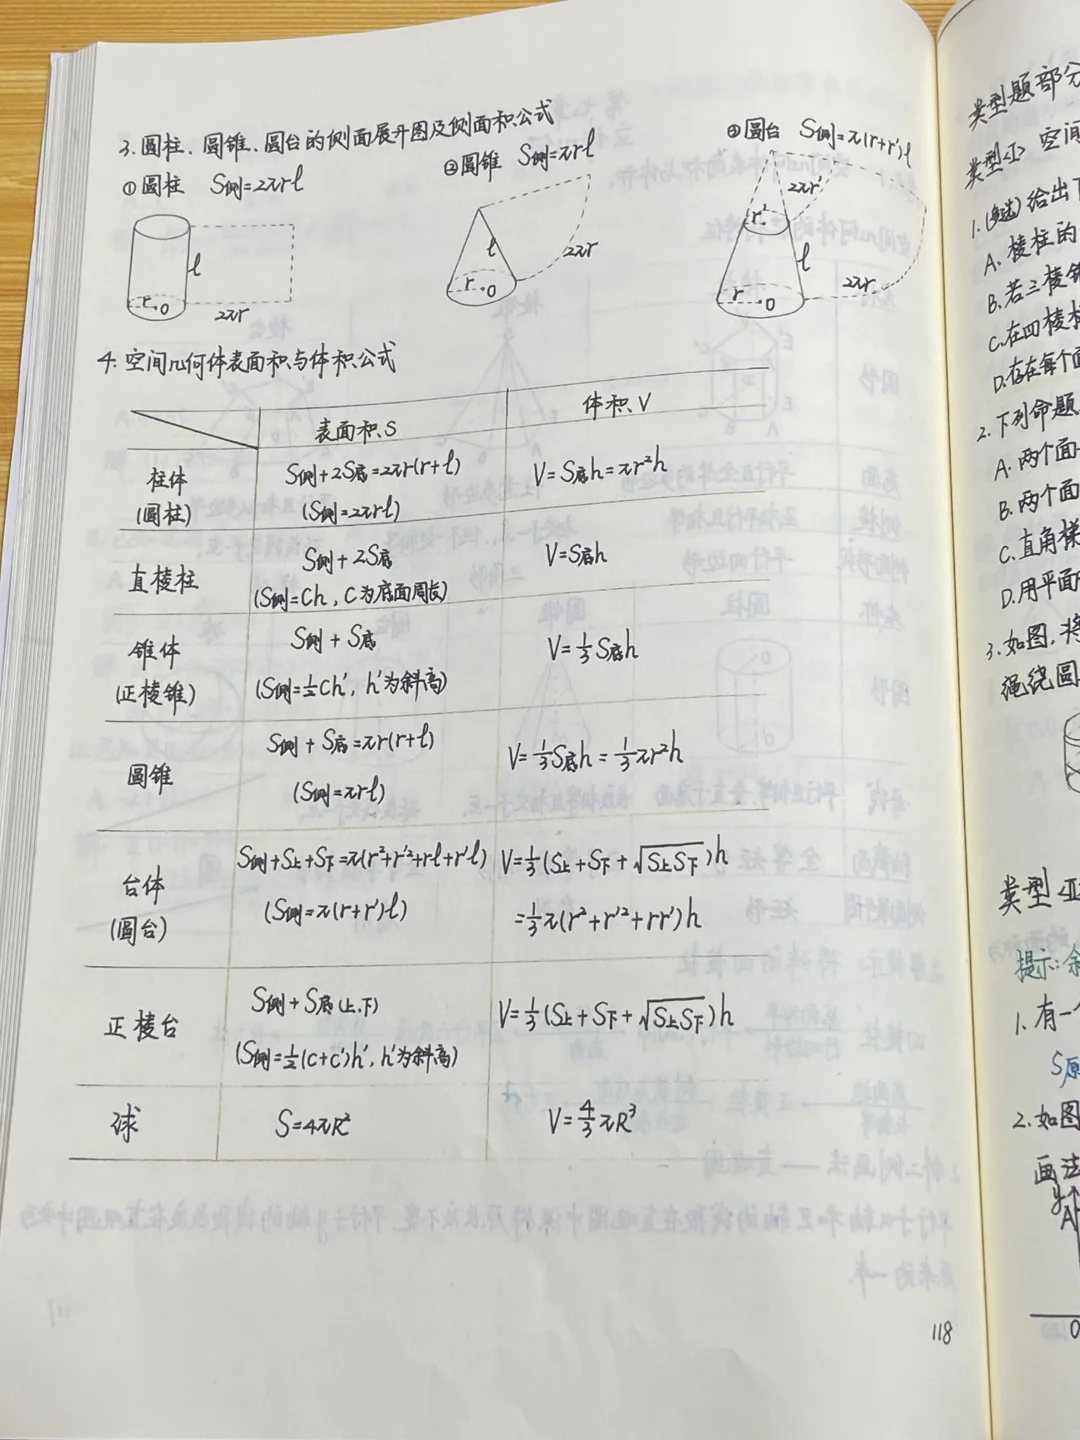 3.圆柱、圆锥、圆台的侧面展开图及侧面积公式
①圆柱 S侧=2πrl
②圆锥 S侧=πrl
③圆台 S侧=π(r+r')l
l
r
O
2πr
l
r
O
2πr
2πr'
r'
l
r
O
2πr
4.空间几何体表面积与体积公式
表面积S
体积V
柱体
(圆柱)
S侧+2S底=2πr(r+l)
(S侧=2πrl)
V=S底h=πr²h
直棱柱
S侧+2S底
(S侧=Ch,C为底面周长)
V=S底h
锥体
(正棱锥)
S侧+S底
(S侧=½Ch',h'为斜高)
V=⅓S底h
圆锥
S侧+S底=πr(r+l)
(S侧=πrl)
V=⅓S底h=⅓πr²h
台体
(圆台)
S侧+S上+S下=π(r²+r'²+rl+r'l)
(S侧=π(r+r')l)
V=⅓(S上+S下+√S上S下)h
=⅓π(r²+r'²+rr')h
正棱台
S侧+S底(上.下)
(S侧=½(c+c')h',h'为斜高)
V=⅓(S上+S下+√S上S下)h
球
S=4πR²
V=4/3πR³
118
类型题部分
类型<I> 空间
1.(多选)给出下
A.棱柱的
B.若三棱锥
C.在四棱柱
D.存在每个面
2.下列命题
A.两个面
B.两个面
C.直角梯
D.用平面
3.如图,将
绳绕圆
类型
提示:
1.有一个
S原
2.如图
画法
y
A
O